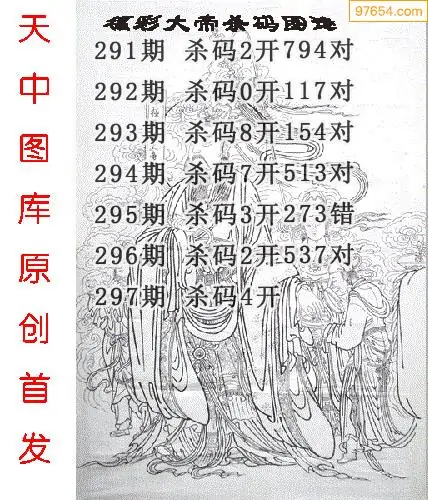 97654.com
福彩大帝杀码图迷
291期 杀码2开794对
292期 杀码0开117对
293期 杀码8开154对
294期 杀码7开513对
295期 杀码3开273错
296期 杀码2开537对
297期 杀码4开
天中图库原创首发